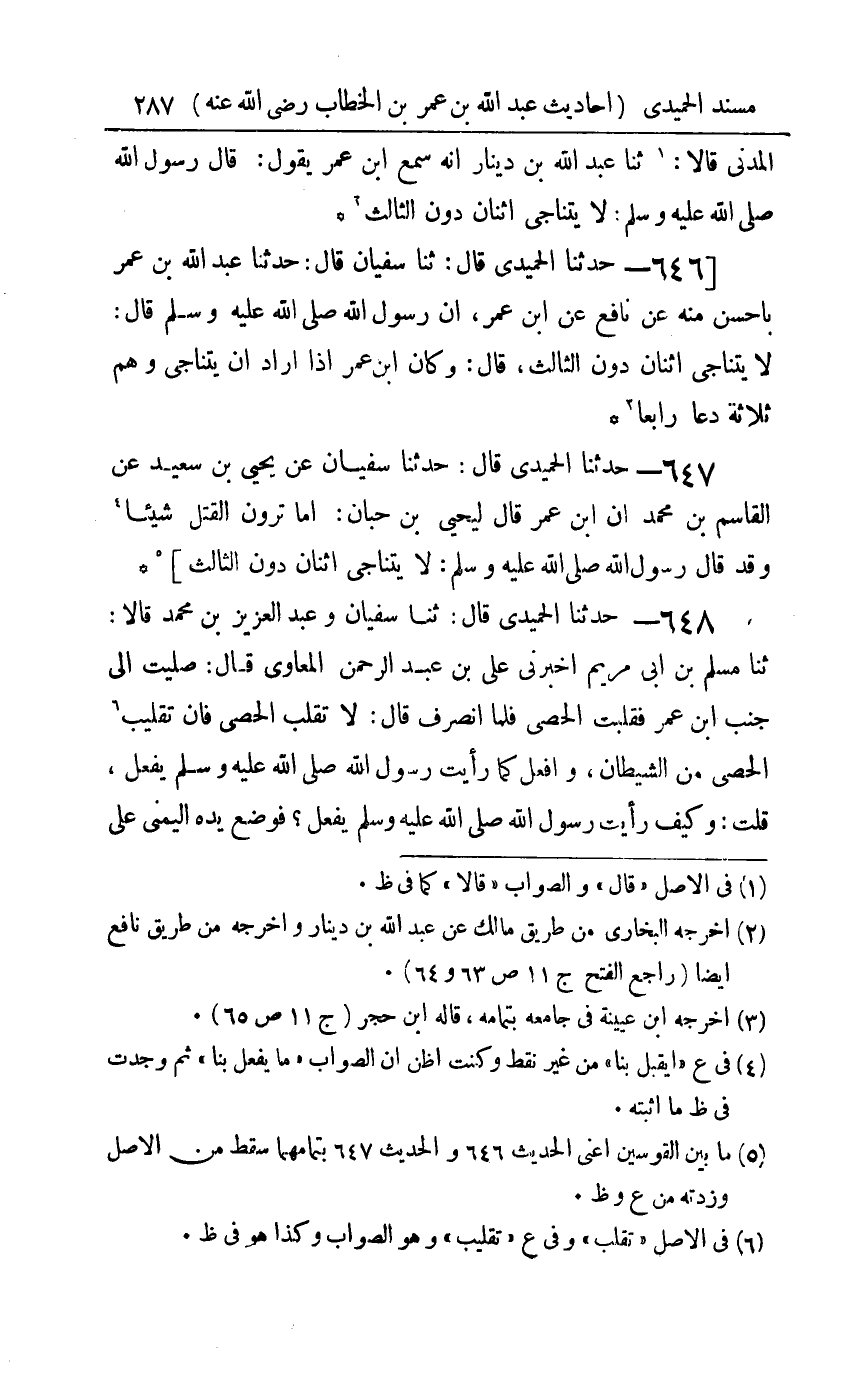 مسند الحميدى (احاديث عبد الله بن عمر بن الخطاب رضى الله عنه) ٢٨٧
المدنى قالا: ١ ثنا عبد الله بن دينار انه سمع ابن عمر يقول: قال رسول الله
صلى الله عليه و سلم: لا يتناجى اثنان دون الثالث ٢ *
[٦٤٦— حدثنا الحميدى قال: ثنا سفيان قال: حدثنا عبد الله بن عمر
باحسن منه عن نافع عن ابن عمر، ان رسول الله صلى الله عليه و سلم قال:
لا يتناجى اثنان دون الثالث، قال: وكان ابن عمر اذا اراد ان يتناجى و هم
ثلاثة دعا رابعا ٣ *
٦٤٧— حدثنا الحميدى قال: حدثنا سفيان عن يحيى بن سعيد عن
القاسم بن محمد ان ابن عمر قال ليحيى بن حبان: اما ترون القتل شيئا ٤
و قد قال رسول الله صلى الله عليه و سلم: لا يتناجى اثنان دون الثالث] ٥ *
٦٤٨— حدثنا الحميدى قال: ثنا سفيان و عبد العزيز بن محمد قالا:
ثنا مسلم بن ابى مريم اخبرنى على بن عبد الرحمن المعاوى قال: صليت الى
جنب ابن عمر فقلبت الحصى فلما انصرف قال: لا تقلب الحصى فان تقليب ٦
الحصى من الشيطان، و افعل كما رأيت رسول الله صلى الله عليه و سلم يفعل،
قلت: وكيف رأيت رسول الله صلى الله عليه وسلم يفعل؟ فوضع يده اليمنى على
(١) فى الاصل «قال» و الصواب «قالا» كما فى ظ ٠
(٢) اخرجه البخارى من طريق مالك عن عبد الله بن دينار و اخرجه من طريق نافع
ايضا (راجع الفتح ج ١١ ص ٦٣ و ٦٤) ٠
(٣) اخرجه ابن عيينة فى جامعه بتمامه، قاله ابن حجر (ج ١١ ص ٦٥) ٠
(٤) فى ع «ايقبل بنا» من غير نقط وكنت اظن ان الصواب «ما يفعل بنا» ثم وجدت
فى ظ ما اثبته ٠
(٥) ما بين القوسين اعنى الحديث ٦٤٦ و الحديث ٦٤٧ بتمامهما سقط من الاصل
وزدته من ع و ظ ٠
(٦) فى الاصل «تقلب» و فى ع «تقليب» و هو الصواب وكذا هو فى ظ ٠